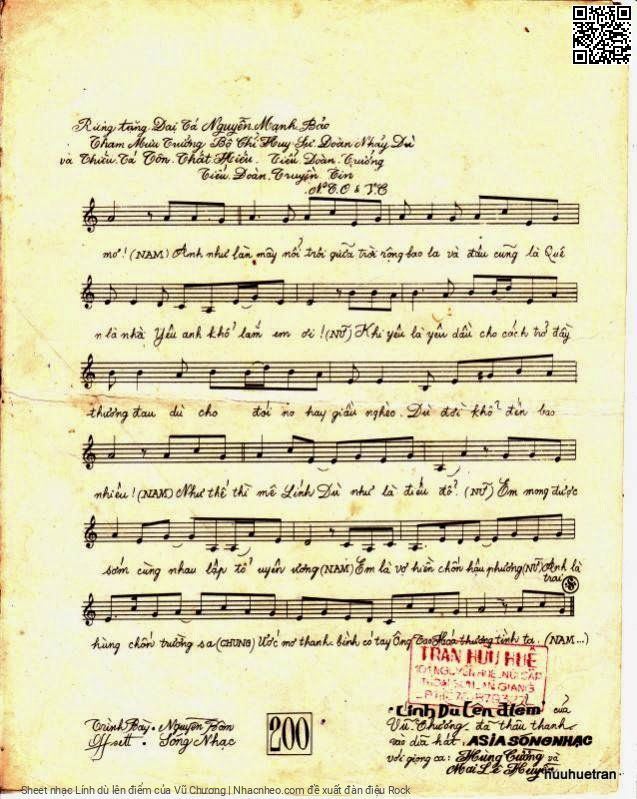 Riêng tặng Đại Tá Nguyễn Mạnh Bảo
Tham Mưu Trưởng Bộ Chỉ Huy Sư Đoàn Nhảy Dù
và Thiếu Tá Tôn Thất Hiếu. Tiểu Đoàn Trưởng
Tiểu Đoàn Truyền Tin
mơ! (NAM) Anh như làn mây nổi trôi giữa trời rộng bao la và đâu cũng là Quê
n là nhà Yêu anh khổ lắm em ơi! (NỮ) Khi yêu là yêu dầu cho cách trở đầy
thương đau dù cho đói no hay giầu nghèo. Dù đời khổ đến bao
nhiêu! (NAM) Như thế thì mê Lính Dù như là điếu đổ. (NỮ) Em mong được
sớm cùng nhau lập tổ uyên ương (NAM) Em là vợ hiền chốn hậu phương (NỮ) Anh là
trai
hùng chốn trường sa (CHUNG) Ước mơ thanh bình có tay Ông Tạo Hoá thương tình ta. (NAM...)
TRẦN HỮU HUỆ
Lính Dù Lên điểm của
Vũ Chương đã thâu thanh
vào dĩa hát ASIA SÓNG NHẠC
với giọng ca: Hùng Cường và
Mai Lệ Huyền
Trình Bày Nguyên Bổn
Offsett Sóng Nhạc
200
huuhuetran
Sheet nhạc Lính dù lên điểm của Vũ Chương | Nhacnheo.com đề xuất đàn điệu Rock